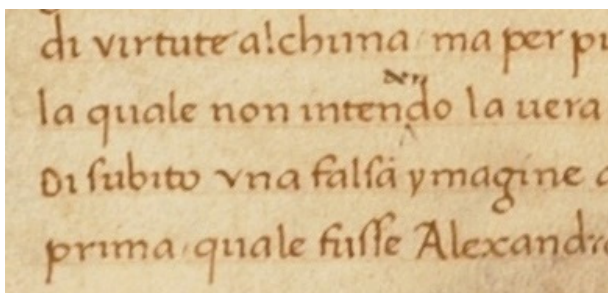 di virtute alchima ma per
la quale non intendo la uera
Di subito vna falsa ymagine
prima quale fusse Alexandr